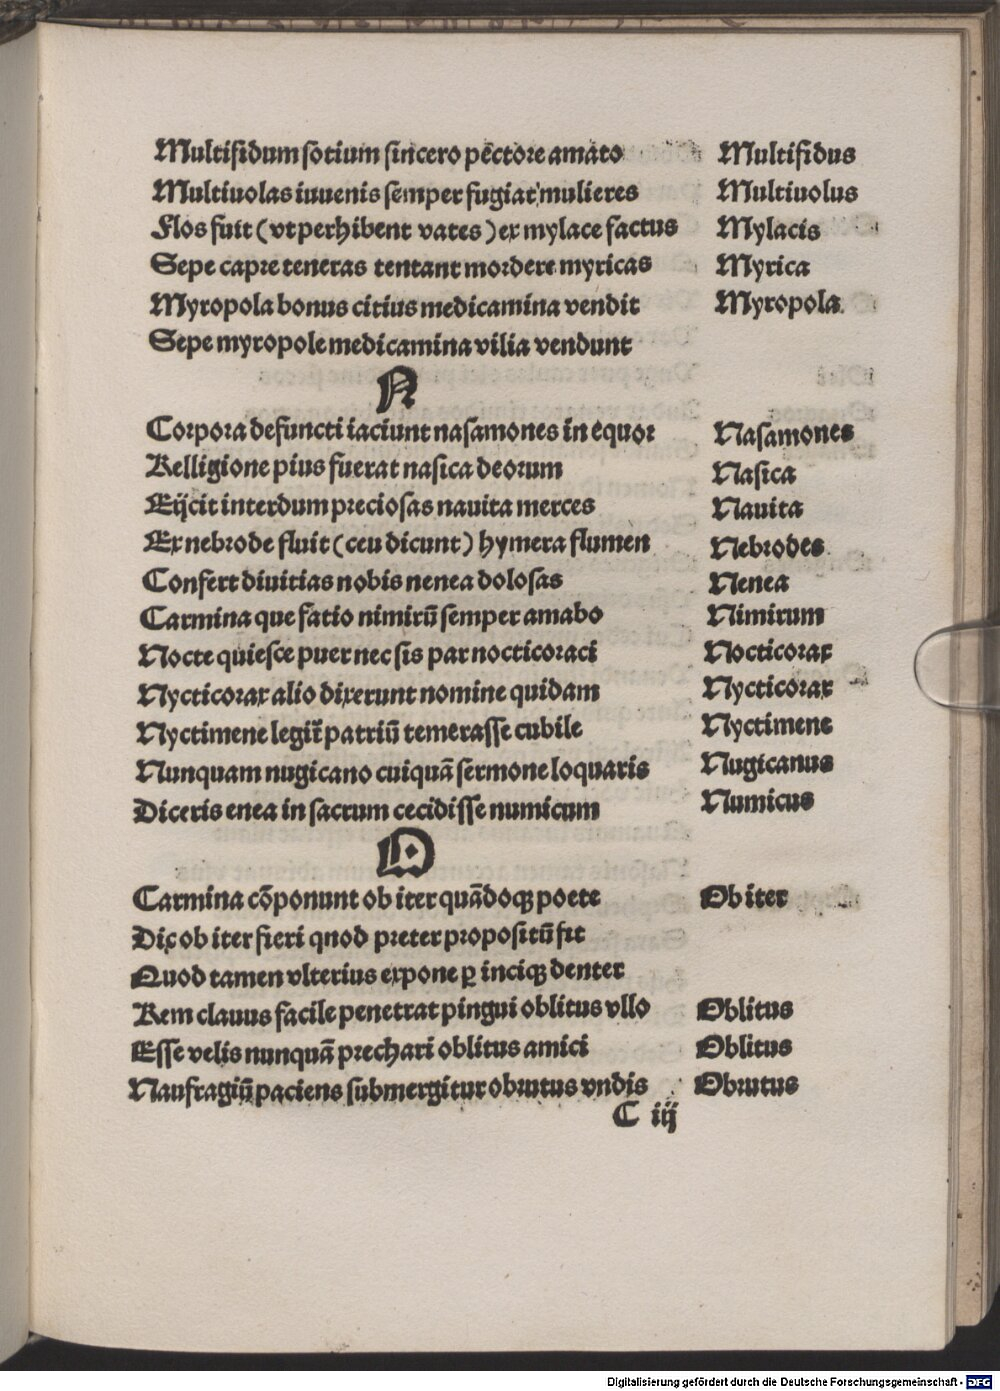 Multifidum sotium sincero pectore amato Multifidus
Multiuolas iuuenis semper fugiat mulieres Multiuolus
Flos fuit (vt perhibent vates) ex mylace factus Mylacis
Sepe capre teneras tentant mordere myricas Myrica
Myropola bonus citius medicamina vendit Myropola
Sepe myropole medicamina vilia vendunt
N
Corpora defuncti iaciunt nasamones in equor Nasamones
Relligione pius fuerat nasica deorum Nasica
Eijcit interdum preciosas nauita merces Nauita
Ex nebrode fluit (ceu dicunt) hymera flumen Nebrodes
Confert diuitias nobis nenea dolosas Nenea
Carmina que fatio nimirū semper amabo Nimirum
Nocte quiesce puer nec sis par nocticoraci Nocticorax
Nycticorax alio dixerunt nomine quidam Nycticorax
Nyctimene legit͛ patriū temerasse cubile Nyctimene
Nunquam nugicano cuiquā sermone loquaris Nugicanus
Diceris enea in sacrum cecidisse numicum Numicus
O
Carmina cōponunt ob iter quādoqꝫ poete Ob iter
Dic ob iter fieri qnod preter propositū fit
Quod tamen vlterius expone ꝑ inciqꝫ denter
Rem clauus facile penetrat pingui oblitus vllo Oblitus
Esse velis nunquā prechari oblitus amici Oblitus
Naufragiū paciens submergitur obrutus vndis Obrutus
C iij
Digitalisierung gefördert durch die Deutsche Forschungsgemeinschaft - DFG